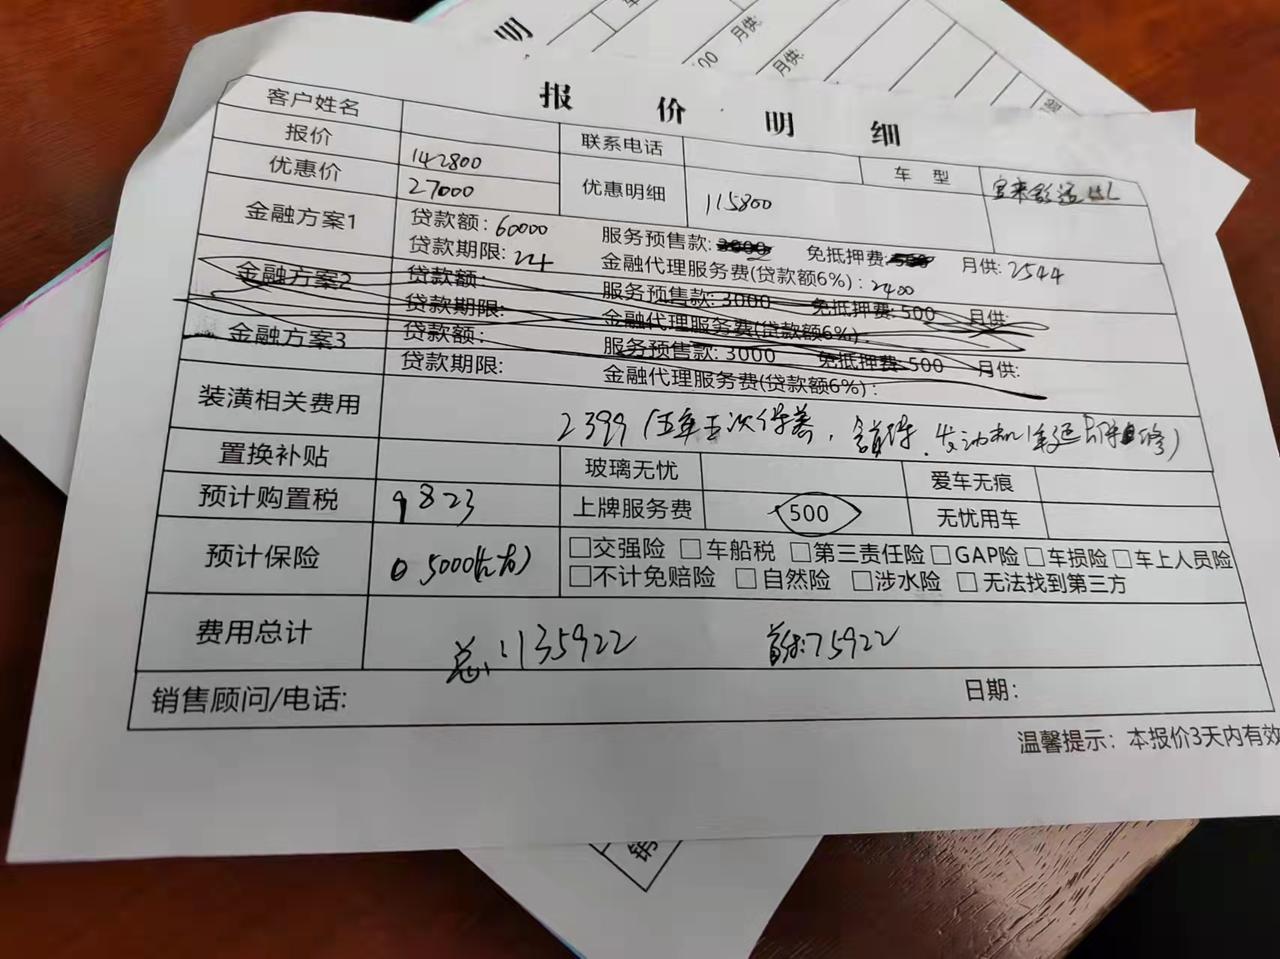 明
月供:
00
月供:
报价明细
客户姓名
联系电话
车 型
报价 142800
优惠价 27000
优惠明细 115800
金融方案1 贷款额: 60000 服务预售款: 免抵押费: 月供: 2544
贷款期限: 24 金融代理服务费(贷款额6%): 2400
金融方案2 贷款额: 服务预售款: 3000 免抵押费: 500 月供:
贷款期限: 金融代理服务费(贷款额6%):
金融方案3 贷款额: 服务预售款: 3000 免抵押费: 500 月供:
贷款期限: 金融代理服务费(贷款额6%):
装潢相关费用 2399(五年五次保养,
置换补贴 玻璃无忧 爱车无痕
预计购置税 9823 上牌服务费 500 无忧用车
预计保险 5000(左右) □交强险 □车船税 □第三责任险 □GAP险 □车损险 □车上人员险
□不计免赔险 □自然险 □涉水险 □无法找到第三方
费用总计 总:135922 首付:75922
销售顾问/电话: 日期:
温馨提示: 本报价3天内有效
销